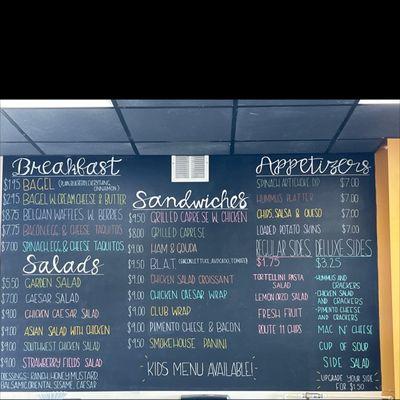 Breakfast
$1.95 BAGEL (PLAIN, BLUEBERRY, EVERYTHING, CINNAMON)
$2.95 BAGEL W. CREAM CHEESE & BUTTER
$8.75 BELGIAN WAFFLES W. BERRIES
$7.75 BACON, EGG, & CHEESE TAQUITOS
$7.00 SPINACH, EGG, & CHEESE TAQUITOS
Salads
$5.50 GARDEN SALAD
$7.00 CAESAR SALAD
$9.00 CHICKEN CAESAR SALAD
$9.00 ASIAN SALAD WITH CHICKEN
$9.00 SOUTHWEST CHICKEN SALAD
$9.00 STRAWBERRY FIELDS SALAD
DRESSINGS: RANCH, HONEY MUSTARD,
BALSAMIC, ORIENTAL SESAME, CAESAR
Sandwiches
$9.50 GRILLED CAPRESE W. CHICKEN
$8.00 GRILLED CAPRESE
$9.00 HAM & GOUDA
$9.50 B.L.A.T. (BACON, LETTUCE, AVOCADO, TOMATO)
$9.00 CHICKEN SALAD CROISSANT
$9.00 CHICKEN CAESAR WRAP
$9.00 CLUB WRAP
$9.00 PIMENTO CHEESE & BACON
$9.50 SMOKEHOUSE PANINI
KIDS MENU AVAILABLE!
Appetizers
SPINACH ARTICHOKE DIP $7.00
HUMMUS PLATTER $7.00
CHIPS, SALSA & QUESO $7.00
LOADED POTATO SKINS $7.00
REGULAR SIDES
$1.75
TORTELLINI PASTA
SALAD
LEMON ORZO SALAD
FRESH FRUIT
ROUTE 11 CHIPS
DELUXE SIDES
$3.25
-HUMMUS AND
CRACKERS
-CHICKEN SALAD
AND CRACKERS
-PIMENTO CHEESE
AND CRACKERS
MAC N' CHEESE
CUP OF SOUP
SIDE SALAD
UPGRADE YOUR SIDE
FOR $1.50